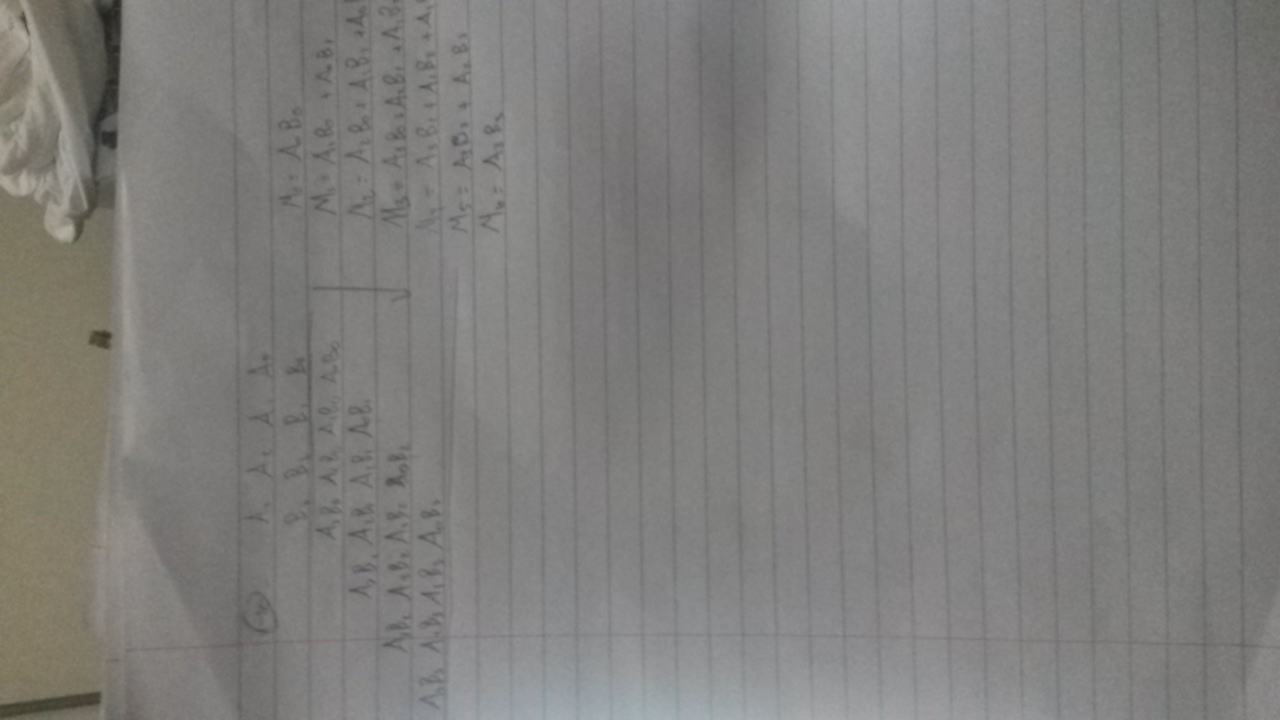 A₃ A₂ A₁ A₀
B₃ B₂ B₁ B₀
A₃B₀ A₂B₀ A₁B₀ A₀B₀
A₃B₁ A₂B₁ A₁B₁ A₀B₁
A₃B₂ A₂B₂ A₁B₂ A₀B₂
A₃B₃ A₂B₃ A₁B₃ A₀B₃
M₀ = A₀B₀
M₁ = A₁B₀ + A₀B₁
M₂ = A₂B₀ + A₁B₁ + A₀B
M₃ = A₃B₀ + A₂B₁ + A₁B₂
M₄ = A₃B₁ + A₂B₂ + A₁
M₅ = A₃B₂ + A₂B₃
M₆ = A₃B₃